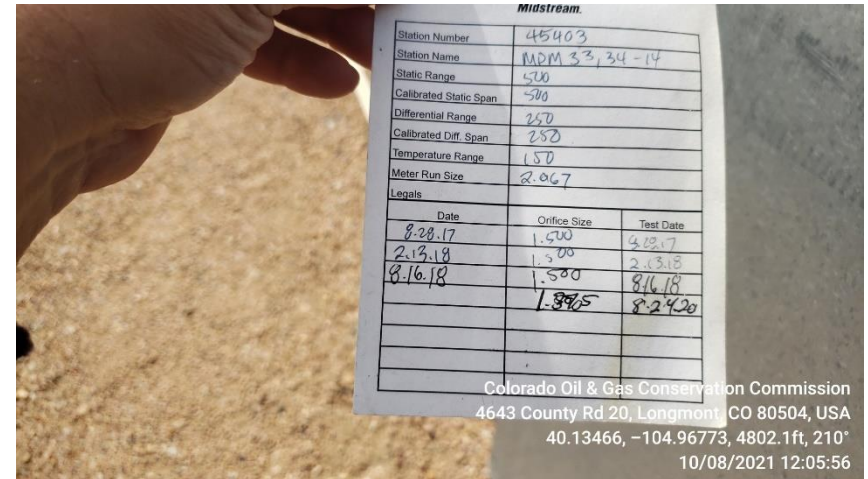 Midstream.
Station Number 45403
Station Name MDM 33,34-14
Static Range 500
Calibrated Static Span 500
Differential Range 250
Calibrated Diff. Span 250
Temperature Range 150
Meter Run Size 2.067
Legals
Date Orifice Size Test Date
8.28.17 1.500 8.28.17
2.13.18 1.500 2.13.18
8.16.18 1.500 8.16.18
8.24.20
Colorado Oil & Gas Conservation Commission
4643 County Rd 20, Longmont, CO 80504, USA
40.13466, -104.96773, 4802.1ft, 210°
10/08/2021 12:05:56